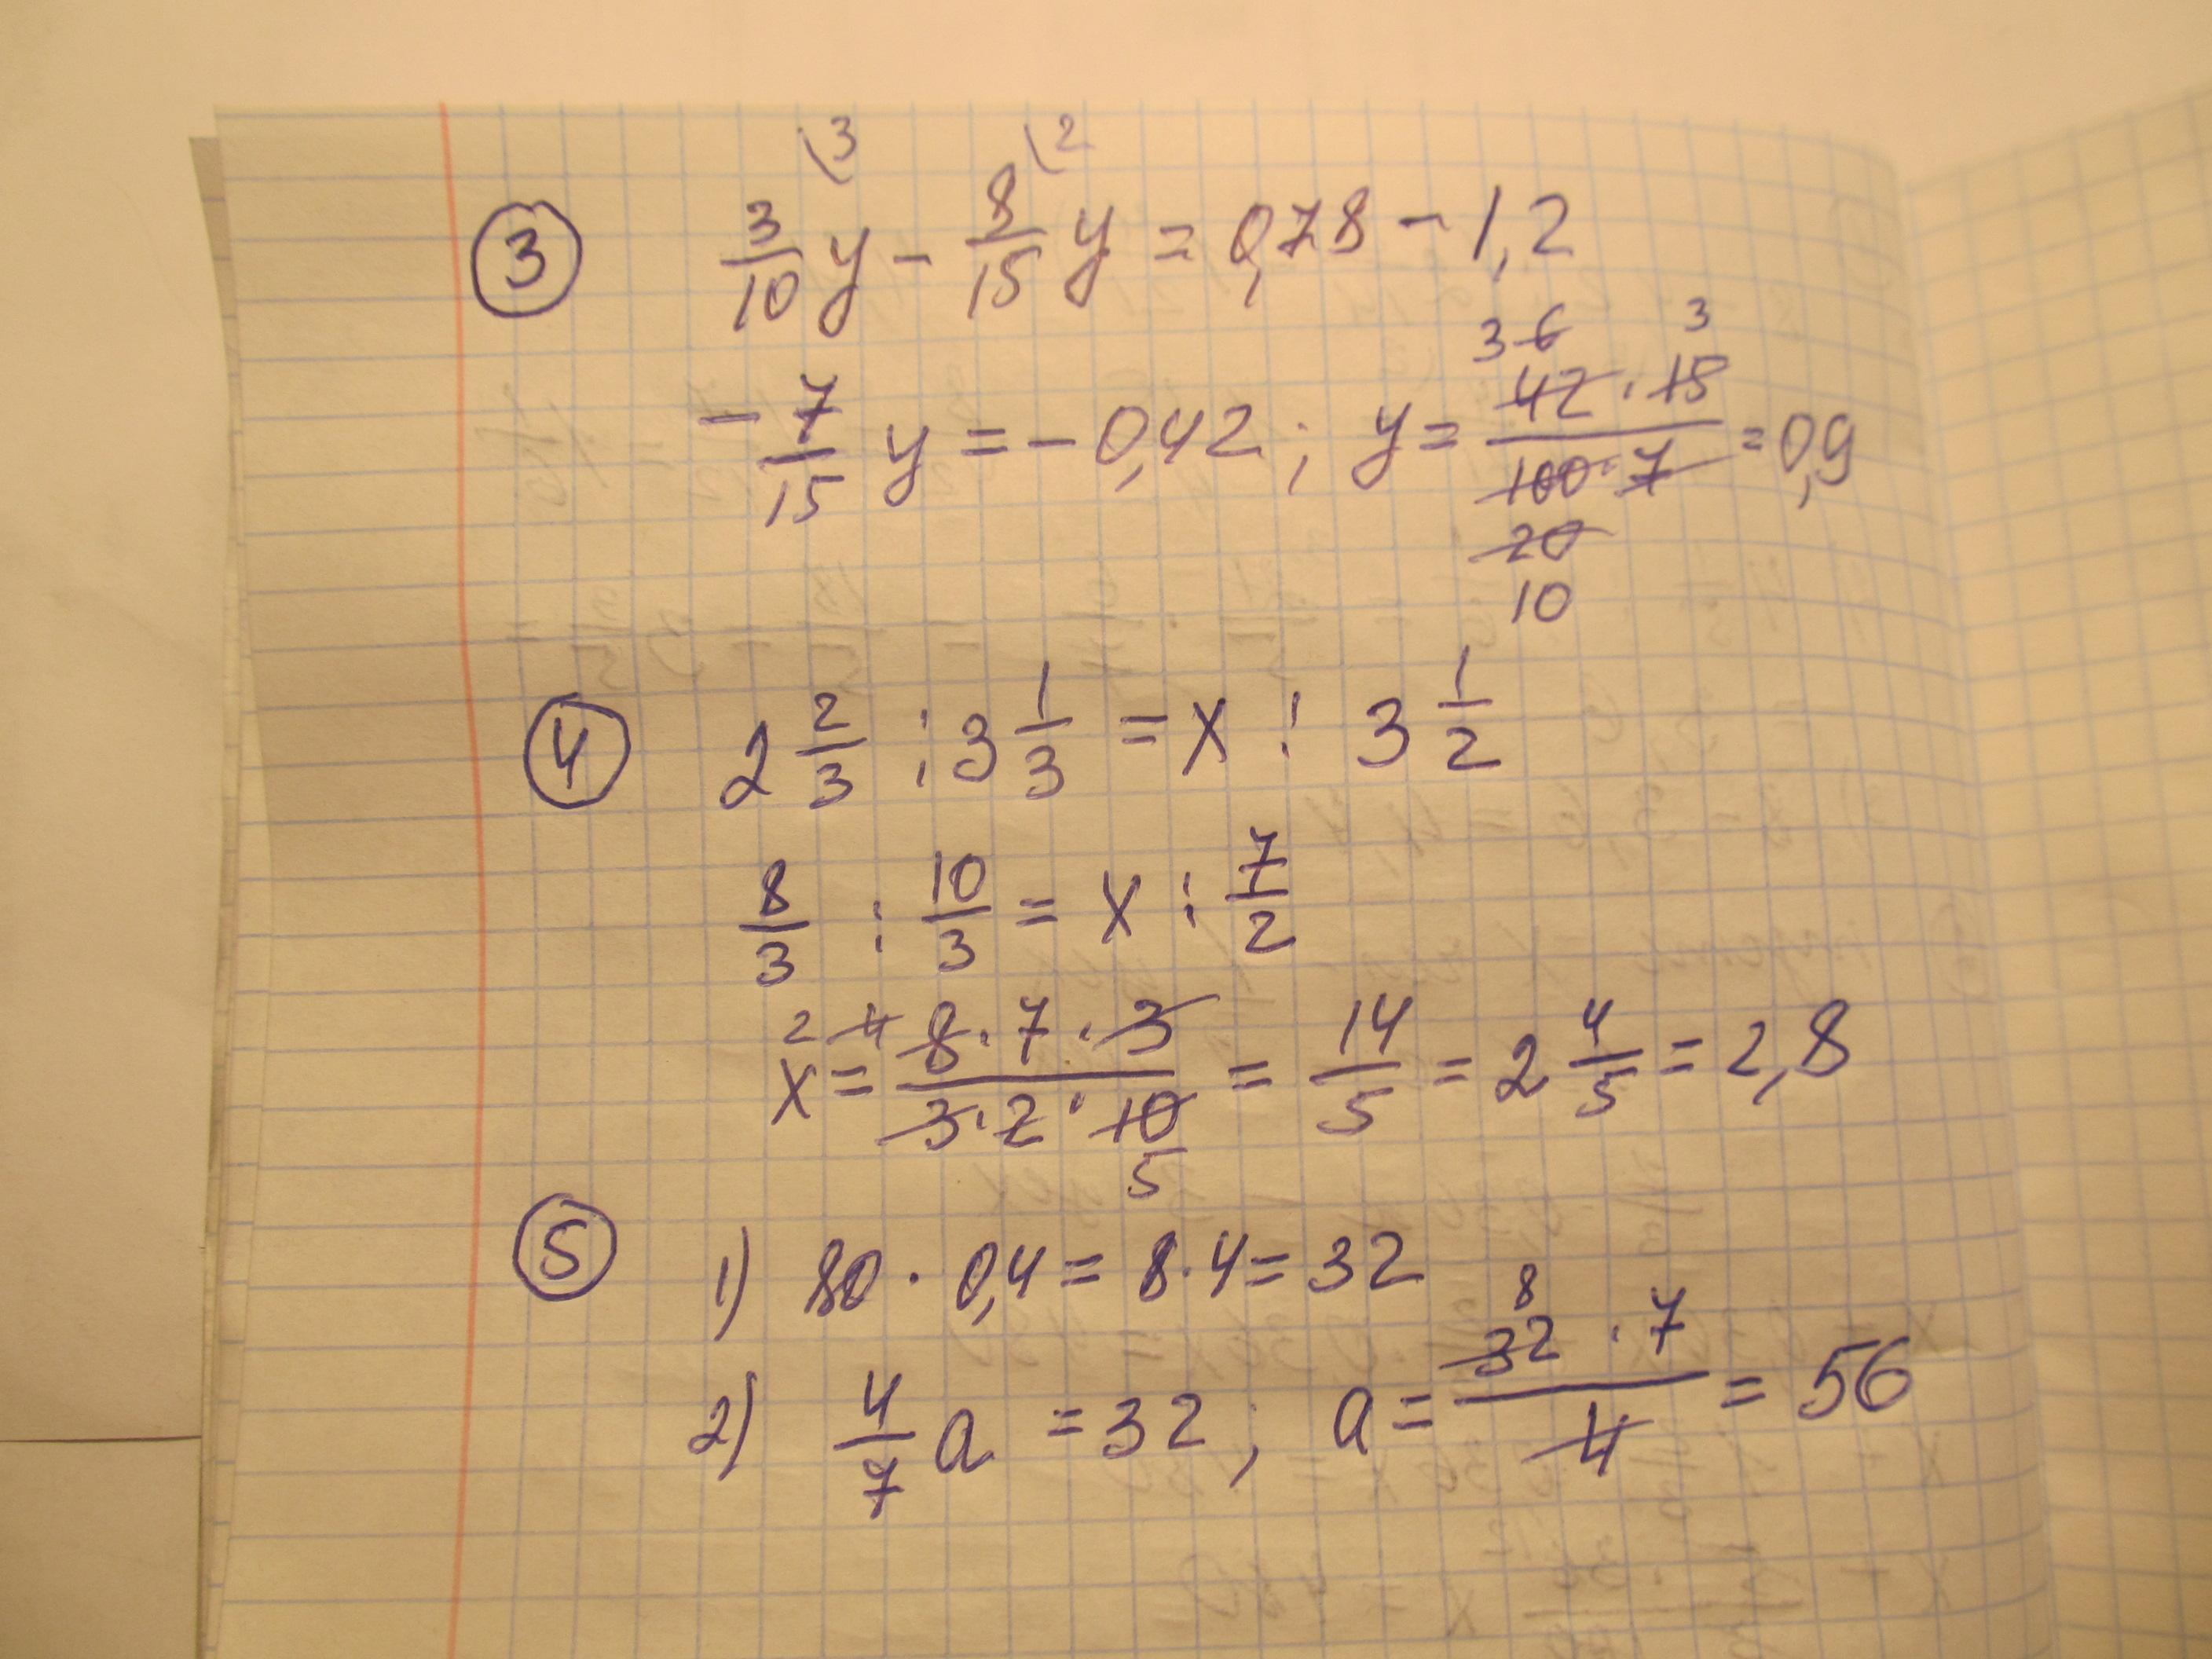 ③ 3/10 \3 y - 8/15 \2 y = 0,78 - 1,2
- 7/15 y = - 0,42 ; y = 42 · 15 / 100 · 7 = 0,9
3 6 3
20
10
④ 2 2/3 : 3 1/3 = x : 3 1/2
8/3 : 10/3 = x : 7/2
2 4
x = 8 · 7 · 3 / 3 · 2 · 10 = 14/5 = 2 4/5 = 2,8
5
⑤ 1) 80 · 0,4 = 8 · 4 = 32
8
2) 4/7 a = 32 ; a = 32 · 7 / 4 = 56